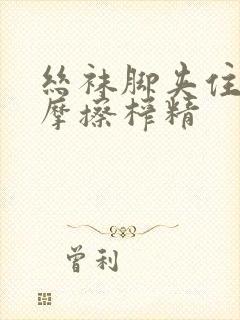 丝袜脚夹住
摩擦榨精
曾利